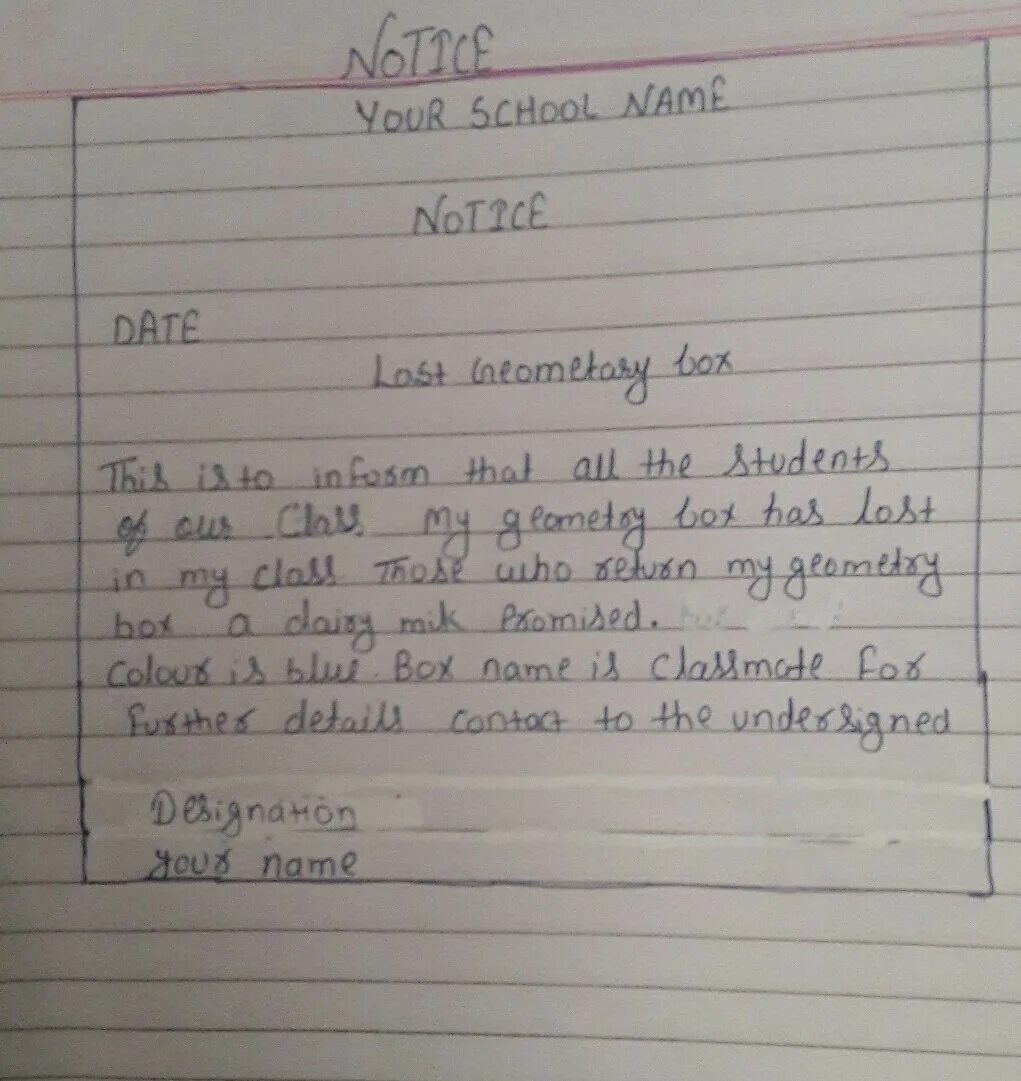 NOTICE
YOUR SCHOOL NAME
NOTICE
DATE
Lost Geometary box
This is to inform that all the students
of our Class my geometry box has lost
in my class Those who return my geometry
box a dairy mik Promised.
Colour is blue. Box name is Classmate For
further details contact to the undersigned
Designation
your name